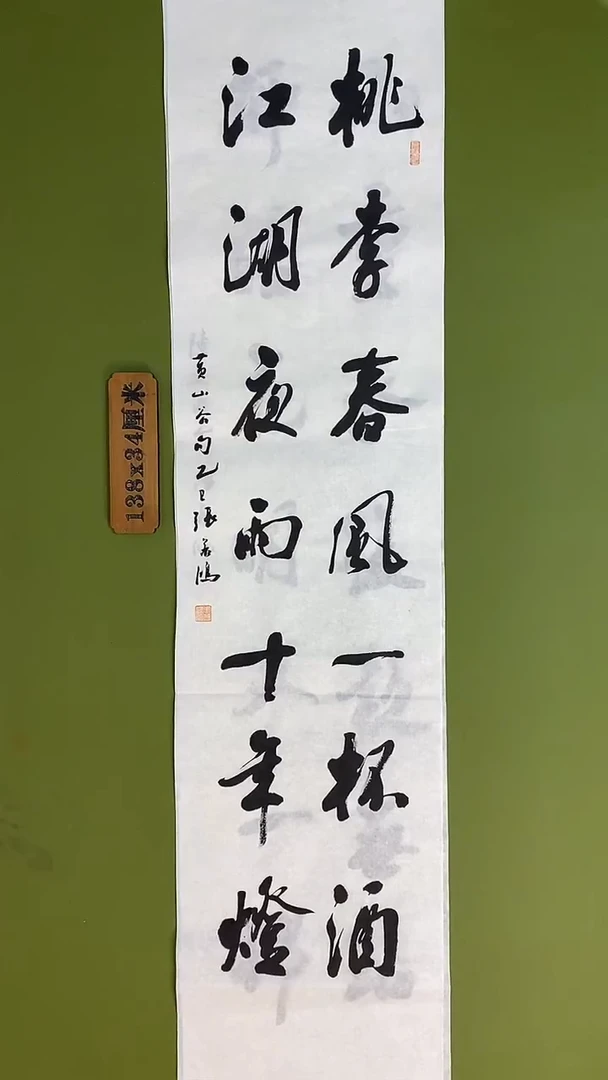 桃李春風一杯酒
江湖夜雨十年燈
黄山谷句乙巳張善鴻
138x34厘米